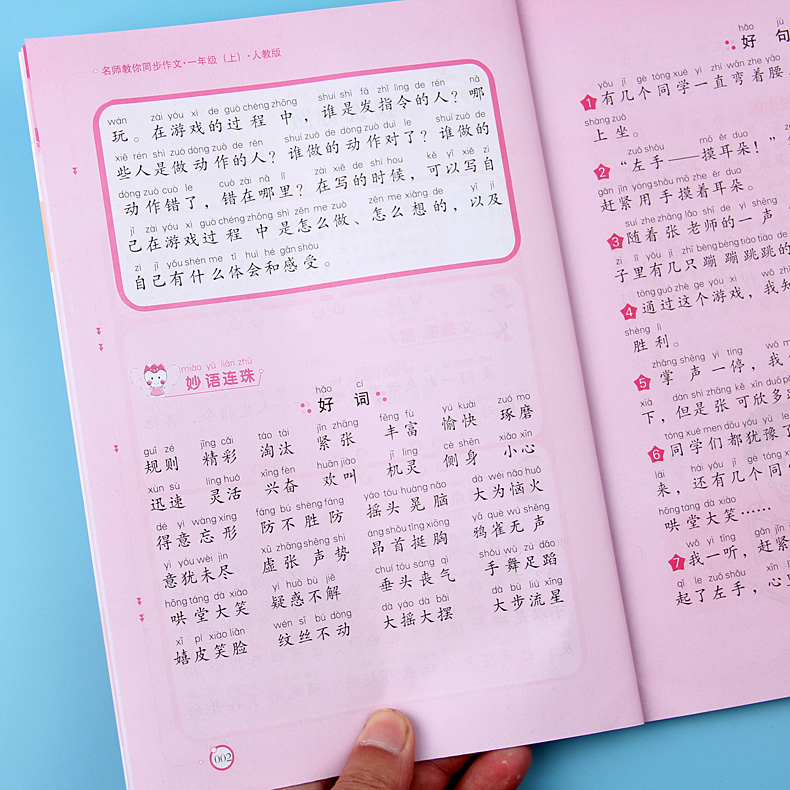 名师教你同步作文·一年级（上）·人教版
wán zài yóu xì de guò chéng zhōng shuí shì fā zhǐ lìng de rén nǎ
玩。在游戏的过程中，谁是发指令的人？哪
xiē rén shì zuò dòng zuò de rén shuí zuò de dòng zuò duì le shuí zuò de
些人是做动作的人？谁做的动作对了？谁做的
dòng zuò cuò le cuò zài nǎ lǐ zài xiě de shí hou kě yǐ xiě zì
动作错了，错在哪里？在写的时候，可以写自
jǐ zài yóu xì guò chéng zhōng shì zěn me zuò zěn me xiǎng de yǐ jí
己在游戏过程中是怎么做、怎么想的，以及
zì jǐ yǒu shén me tǐ huì hé gǎn shòu
自己有什么体会和感受。
miào yǔ lián zhū
妙语连珠
hǎo cí
好词
guī zé jīng cǎi táo tài jǐn zhāng fēng fù yú kuài zuó mo
规则 精彩 淘汰 紧张 丰富 愉快 琢磨
xùn sù líng huó xīng fèn huān jiào jī líng cè shēn xiǎo xīn
迅速 灵活 兴奋 欢叫 机灵 侧身 小心
dé yì wàng xíng fáng bù shèng fáng yáo tóu huàng nǎo dà wéi nǎo huǒ
得意忘形 防不胜防 摇头晃脑 大为恼火
yì yóu wèi jìn xū zhāng shēng shì áng shǒu tǐng xiōng yā què wú shēng
意犹未尽 虚张声势 昂首挺胸 鸦雀无声
hōng táng dà xiào yí huò bù jiě chuí tóu sàng qì shǒu wǔ zú dǎo
哄堂大笑 疑惑不解 垂头丧气 手舞足蹈
xī pí xiào liǎn wén sī bú dòng dà yáo dà bǎi dà bù liú xīng
嬉皮笑脸 纹丝不动 大摇大摆 大步流星
002
hǎo jù
好句
yǒu jǐ gè tóng xué yì zhí wān zhe yāo
1 有几个同学一直弯着腰
shàng zuò
上坐。
zuǒ shǒu mō ěr duo
2 “左手——摸耳朵！”
gǎn jǐn yòng shǒu mō zhe ěr duo
赶紧用手摸着耳朵。
suí zhe zhāng lǎo shī de yì shēng
3 随着张老师的一声
zi lǐ yǒu jǐ zhī bèng bèng tiào tiào de
子里有几只蹦蹦跳跳的
tōng guò zhè ge yóu xì wǒ zhī
4 通过这个游戏，我知
shèng lì
胜利。
zhǎng shēng yì tíng wǒ m
5 掌声一停，我
xià dàn shì zhāng kě xīn duō
下，但是张可欣多
tóng xué men dōu yóu yù le
6 同学们都犹豫了
lái hái yǒu jǐ gè tóng
来，还有几个同
hōng táng dà xiào
哄堂大笑……
wǒ yì tīng gǎn jǐn
7 我一听，赶紧
qǐ le zuǒ shǒu xīn
起了左手，心里